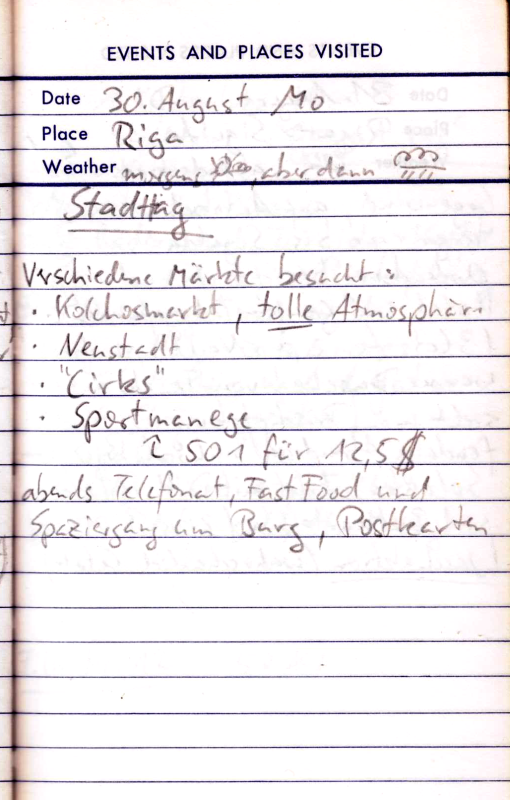 EVENTS AND PLACES VISITED
Date 30. August Mo
Place Riga
Weather morgens, aber dann
Stadttag
Verschiedene Märkte besucht:
· Kolchosmarkt, tolle Atmosphär.
· Neustadt
· "Cirks"
· Sportmanege
501 für 12,5 $
abends Telefonat, Fast Food und
Spaziergang um Burg, Postkarten